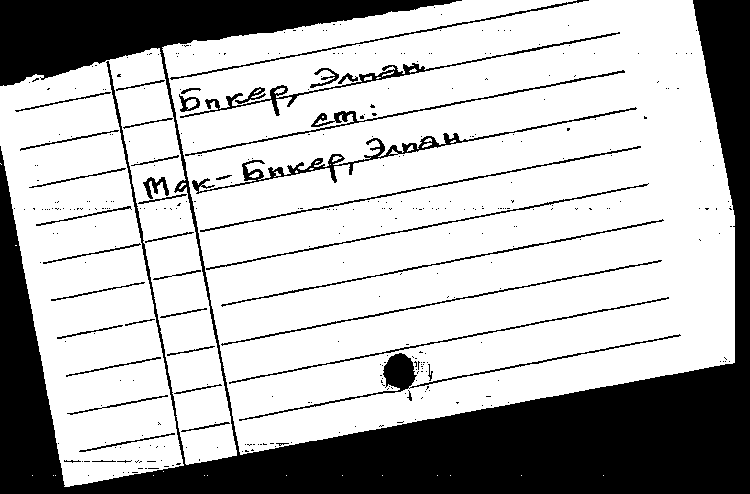 Бикер, Элиан
ст.:
Мак-Бикер, Элиан